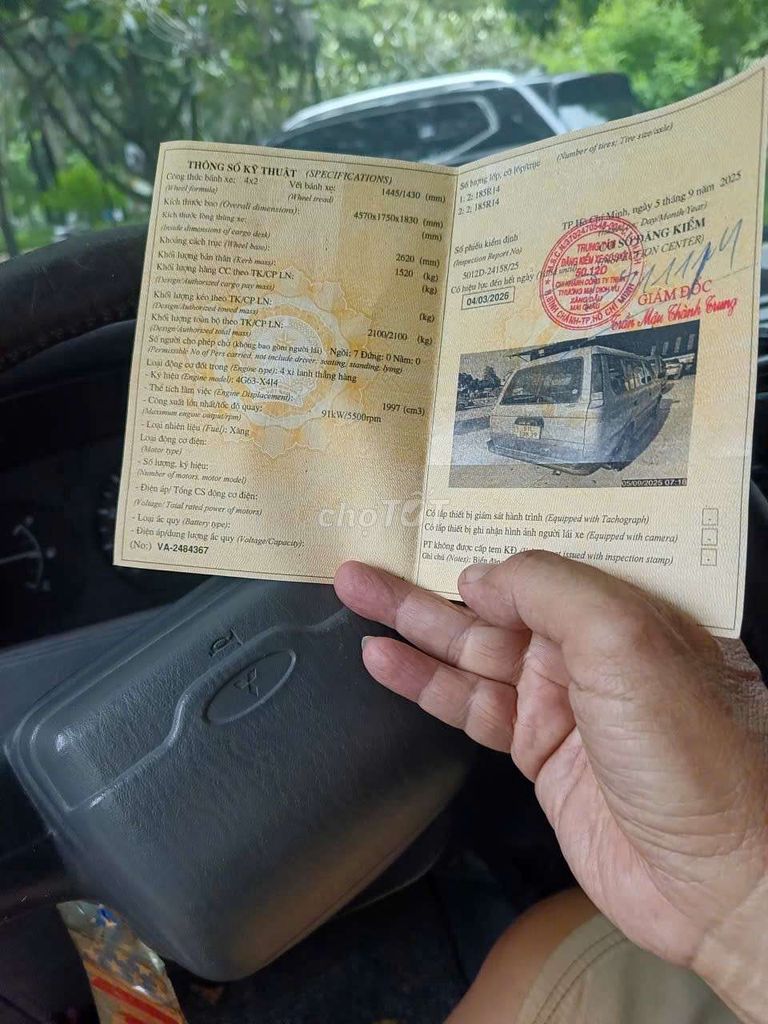 THÔNG SỐ KỸ THUẬT (SPECIFICATIONS)
Công thức bánh xe: 4x2 Vết bánh xe: 1445/1430 (mm)
(Wheel formula) (Wheel tread)
Kích thước bao (Overall dimensions): 4570x1750x1830 (mm)
Kích thước lòng thùng xe: (mm)
(Inside dimensions of cargo deck)
Khoảng cách trục (Wheel base): 2620 (mm)
Khối lượng bản thân (Kerb mass): 1520 (kg)
Khối lượng hàng CC theo TK/CP LN: (kg)
(Design/Authorized cargo pay mass)
Khối lượng kéo theo TK/CP LN: (kg)
(Design/Authorized towed mass)
Khối lượng toàn bộ theo TK/CP LN: 2100/2100 (kg)
(Design/Authorized total mass)
Số người cho phép chở (không bao gồm người lái) Ngồi: 7 Đứng: 0 Nằm: 0
(Permissible No of Pers carried, not include driver: seating, standing, lying)
Loại động cơ đốt trong (Engine type): 4 xi lanh thẳng hàng
- Ký hiệu (Engine model): 4G63-X4J4
- Thể tích làm việc (Engine Displacement): 1997 (cm3)
- Công suất lớn nhất/tốc độ quay: 91kW/5500rpm
(Maximum engine output/rpm)
- Loại nhiên liệu (Fuel): Xăng
Loại động cơ điện:
(Motor type)
- Số lượng, ký hiệu:
(Number of motors, motor model)
- Điện áp/ Tổng CS động cơ điện:
(Voltage/ Total rated power of motors)
- Loại ắc quy (Battery type):
- Điện áp/dung lượng ắc quy (Voltage/Capacity):
(No:) VA-2484367
Số lượng lốp, cỡ lốp/trục (Number of tires; Tire size/axle)
1: 2; 185R14
2: 2; 185R14
TP Hồ Chí Minh, ngày 5 tháng 9 năm 2025
Day/Month/Year)
Số phiếu kiểm định CƠ SỞ ĐĂNG KIỂM
(Inspection Report No) CENTER)
5012D-24158/25
Có hiệu lực đến hết ngày
04/03/2026
TRUNG
ĐĂNG KIỂM XE
50.12D
GIÁM ĐỐC
Trần Mậu Thành Trung
05/09/2025 07:18
Có lắp thiết bị giám sát hành trình (Equipped with Tachograph)
Có lắp thiết bị ghi nhận hình ảnh người lái xe (Equipped with camera)
PT không được cấp tem KĐ issued with inspection stamp)
Ghi chú (Notes): Biển
choTỐT